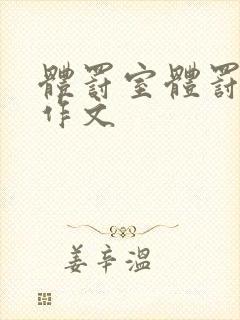 體罰室體罰
作文
姜辛溫